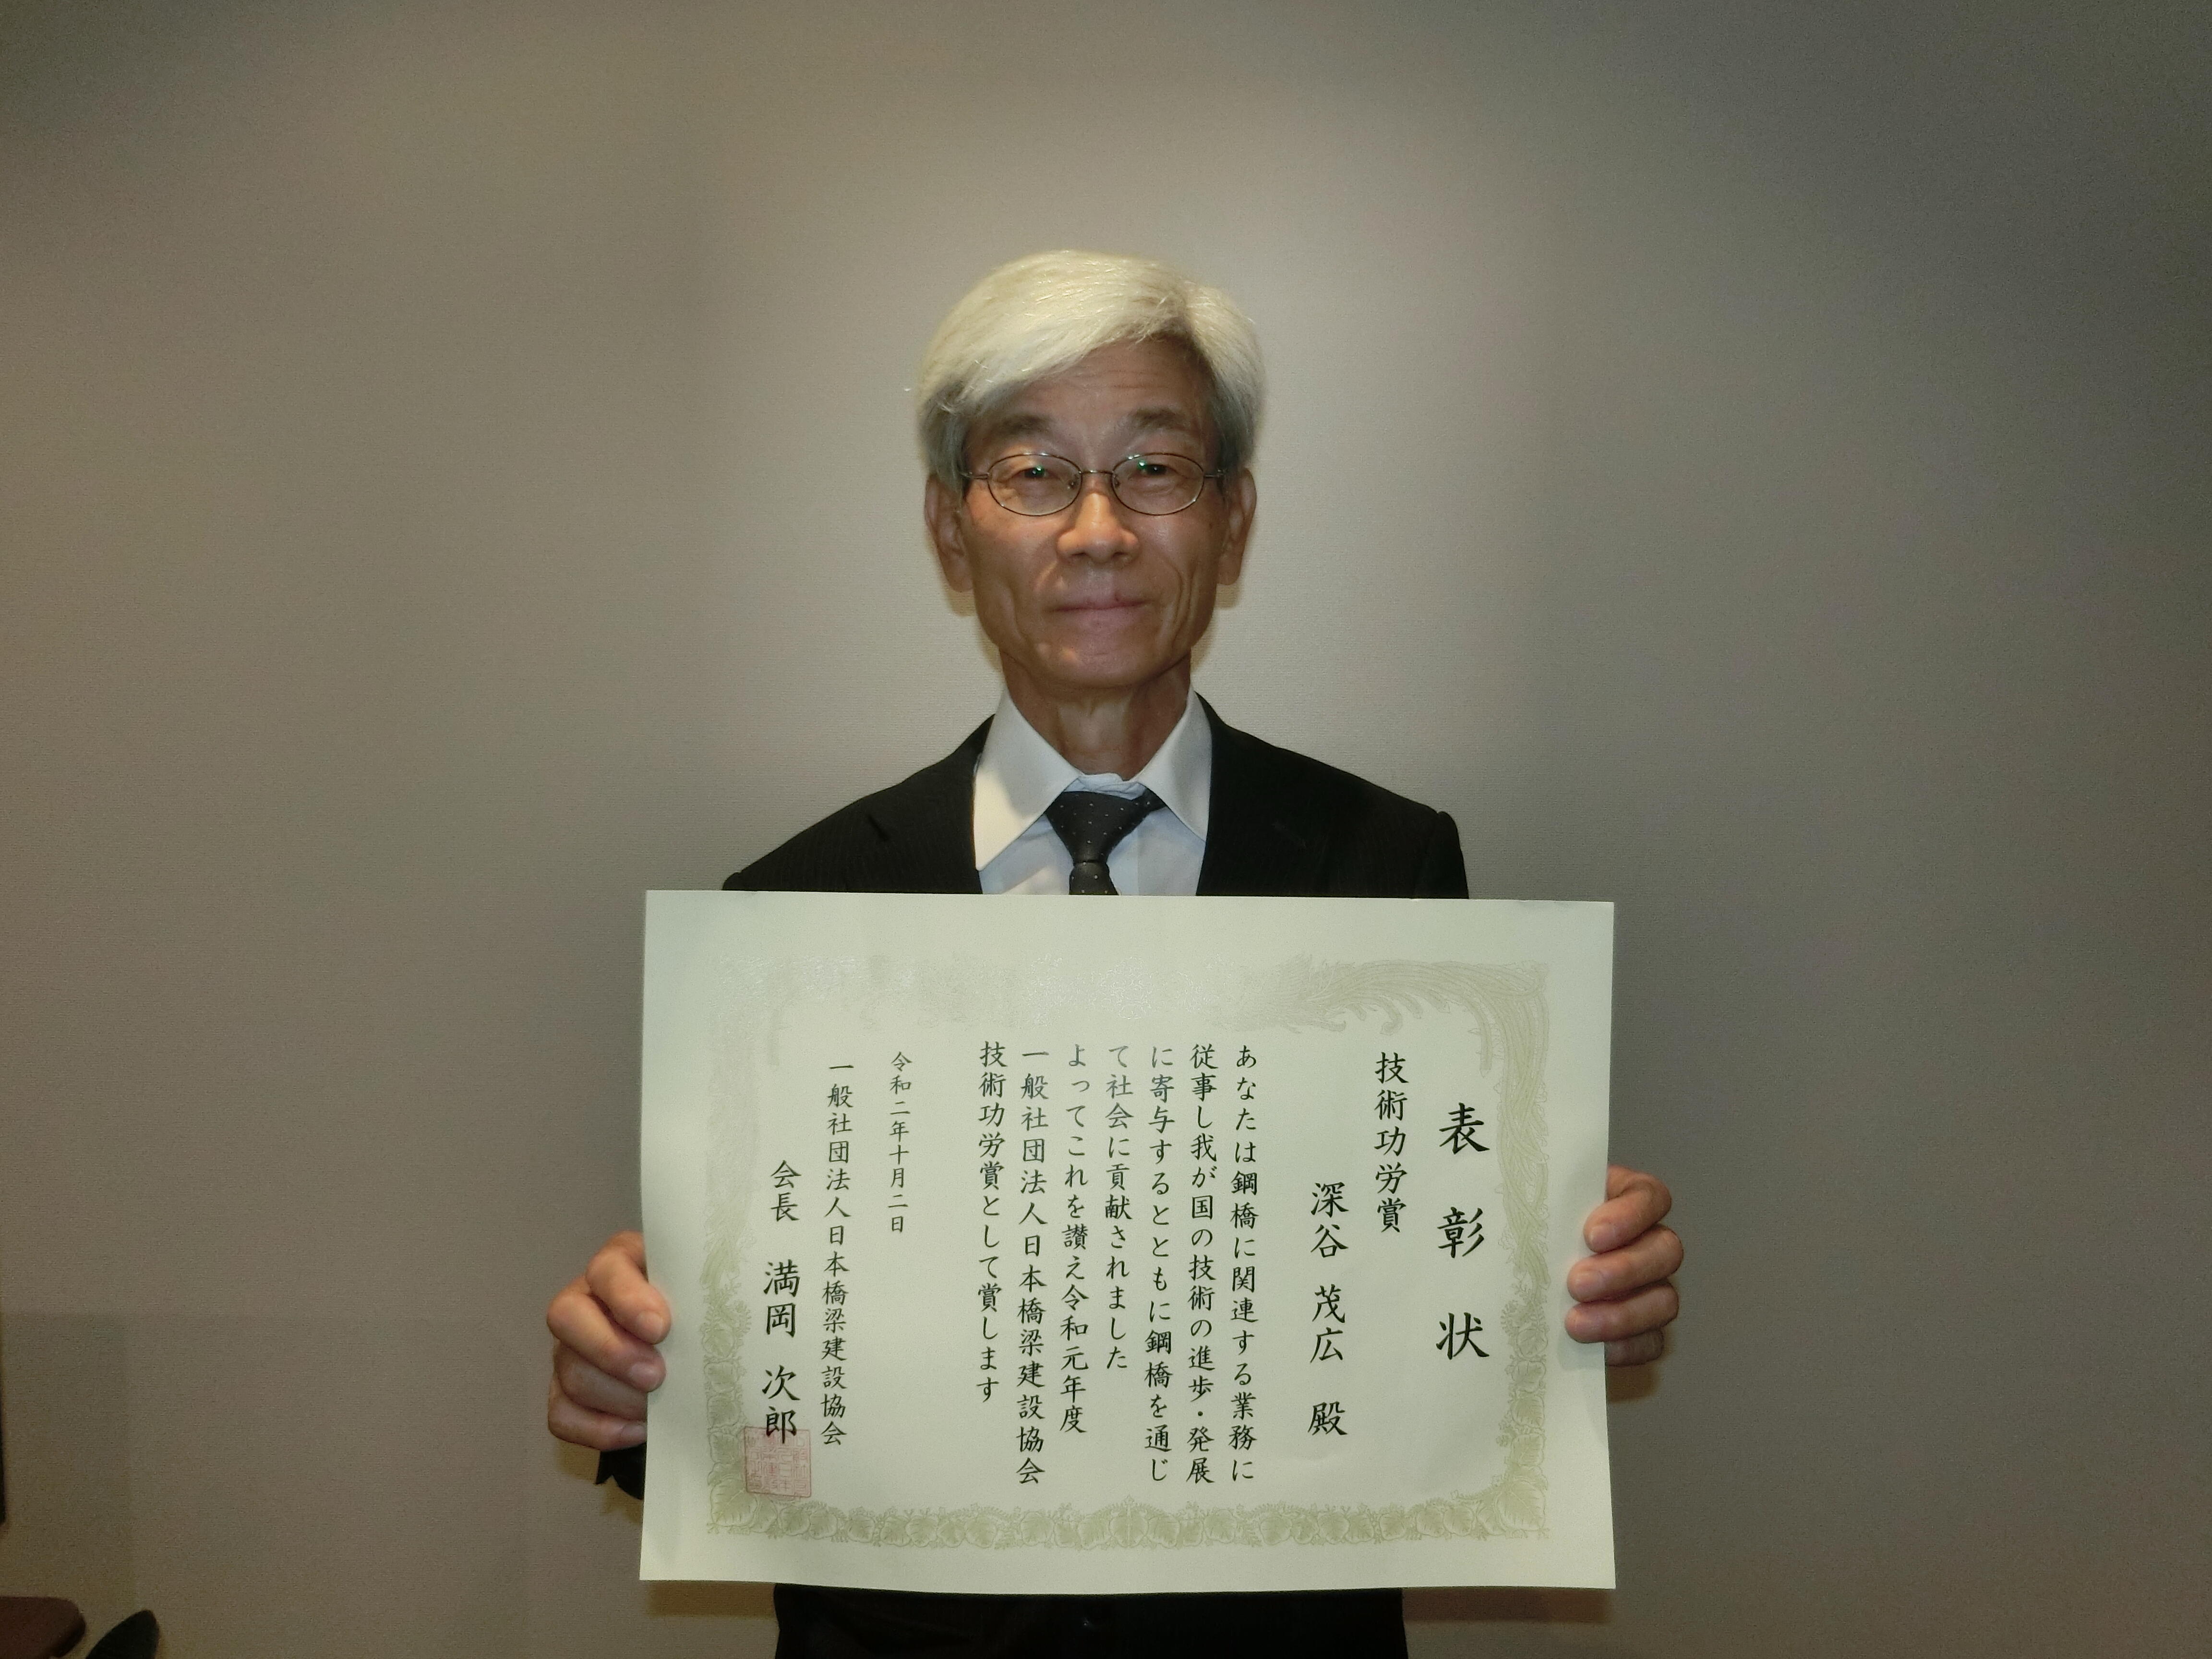 表彰状
技術功労賞
深谷 茂広 殿
あなたは鋼橋に関連する業務に
従事し我が国の技術の進歩・発展
に寄与するとともに鋼橋を通じ
て社会に貢献されました
よってこれを讃え令和元年度
一般社団法人日本橋梁建設協会
技術功労賞として賞します
令和二年十月二日
一般社団法人日本橋梁建設協会
会長 満岡 次郎